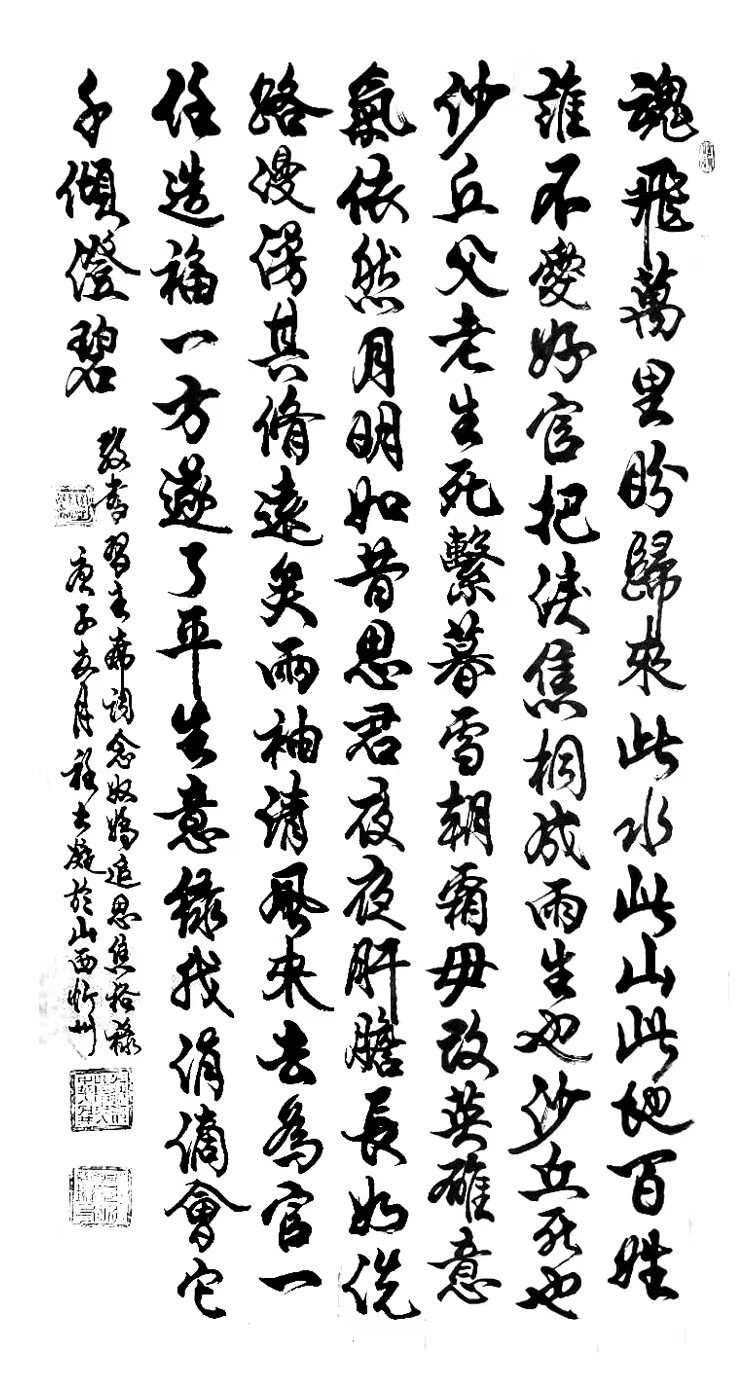 魂飛萬里盼歸來此水此山此地百姓
誰不愛好官把淚焦桐成雨生也沙丘死也
沙丘父老生死繫暮雪朝霜毋改英雄意
氣依然月明如昔思君夜夜肝膽長如洗
路漫漫其脩遠矣兩袖清風來去為官一
任造福一方遂了平生意綠我涓滴會它
千傾澄碧
敬書習主席詞念奴嬌追思焦裕祿
庚子月於山西忻州